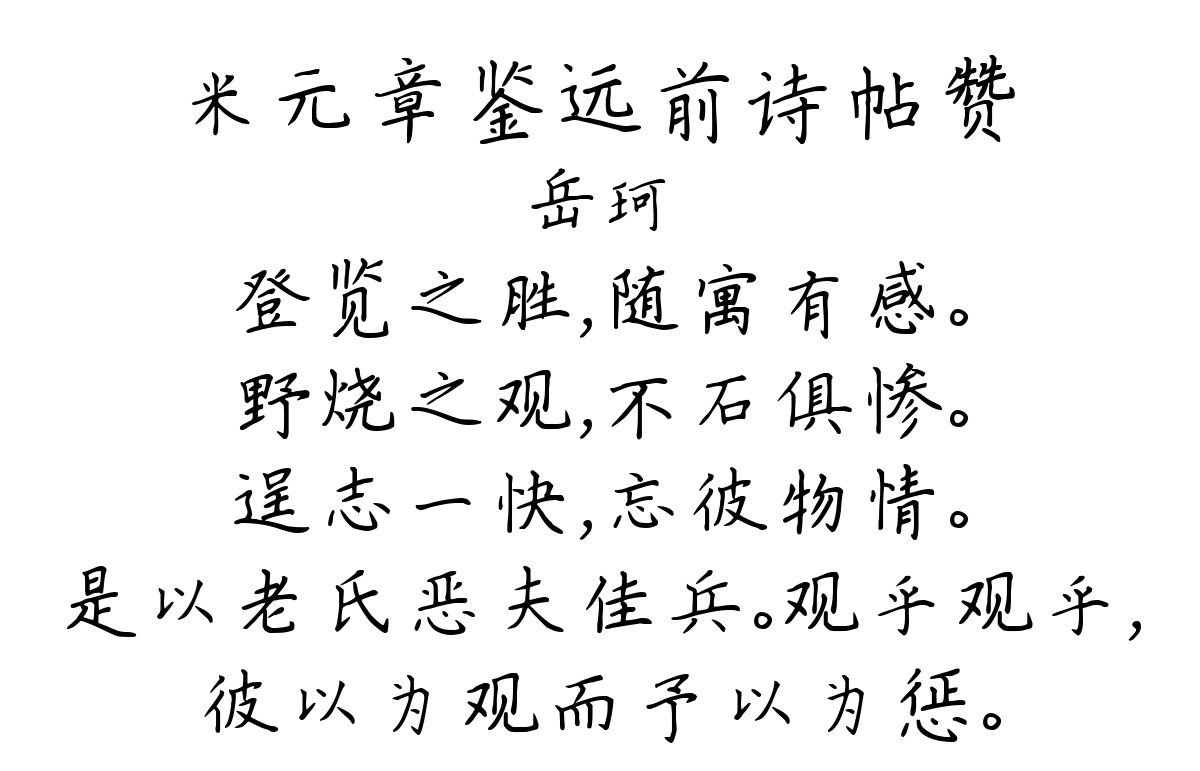 米元章鉴远前诗帖赞
岳珂
登览之胜,随寓有感。
野烧之观,不石俱惨。
逞志一快,忘彼物情。
是以老氏恶夫佳兵。观乎观乎,
彼以为观而予以为惩。